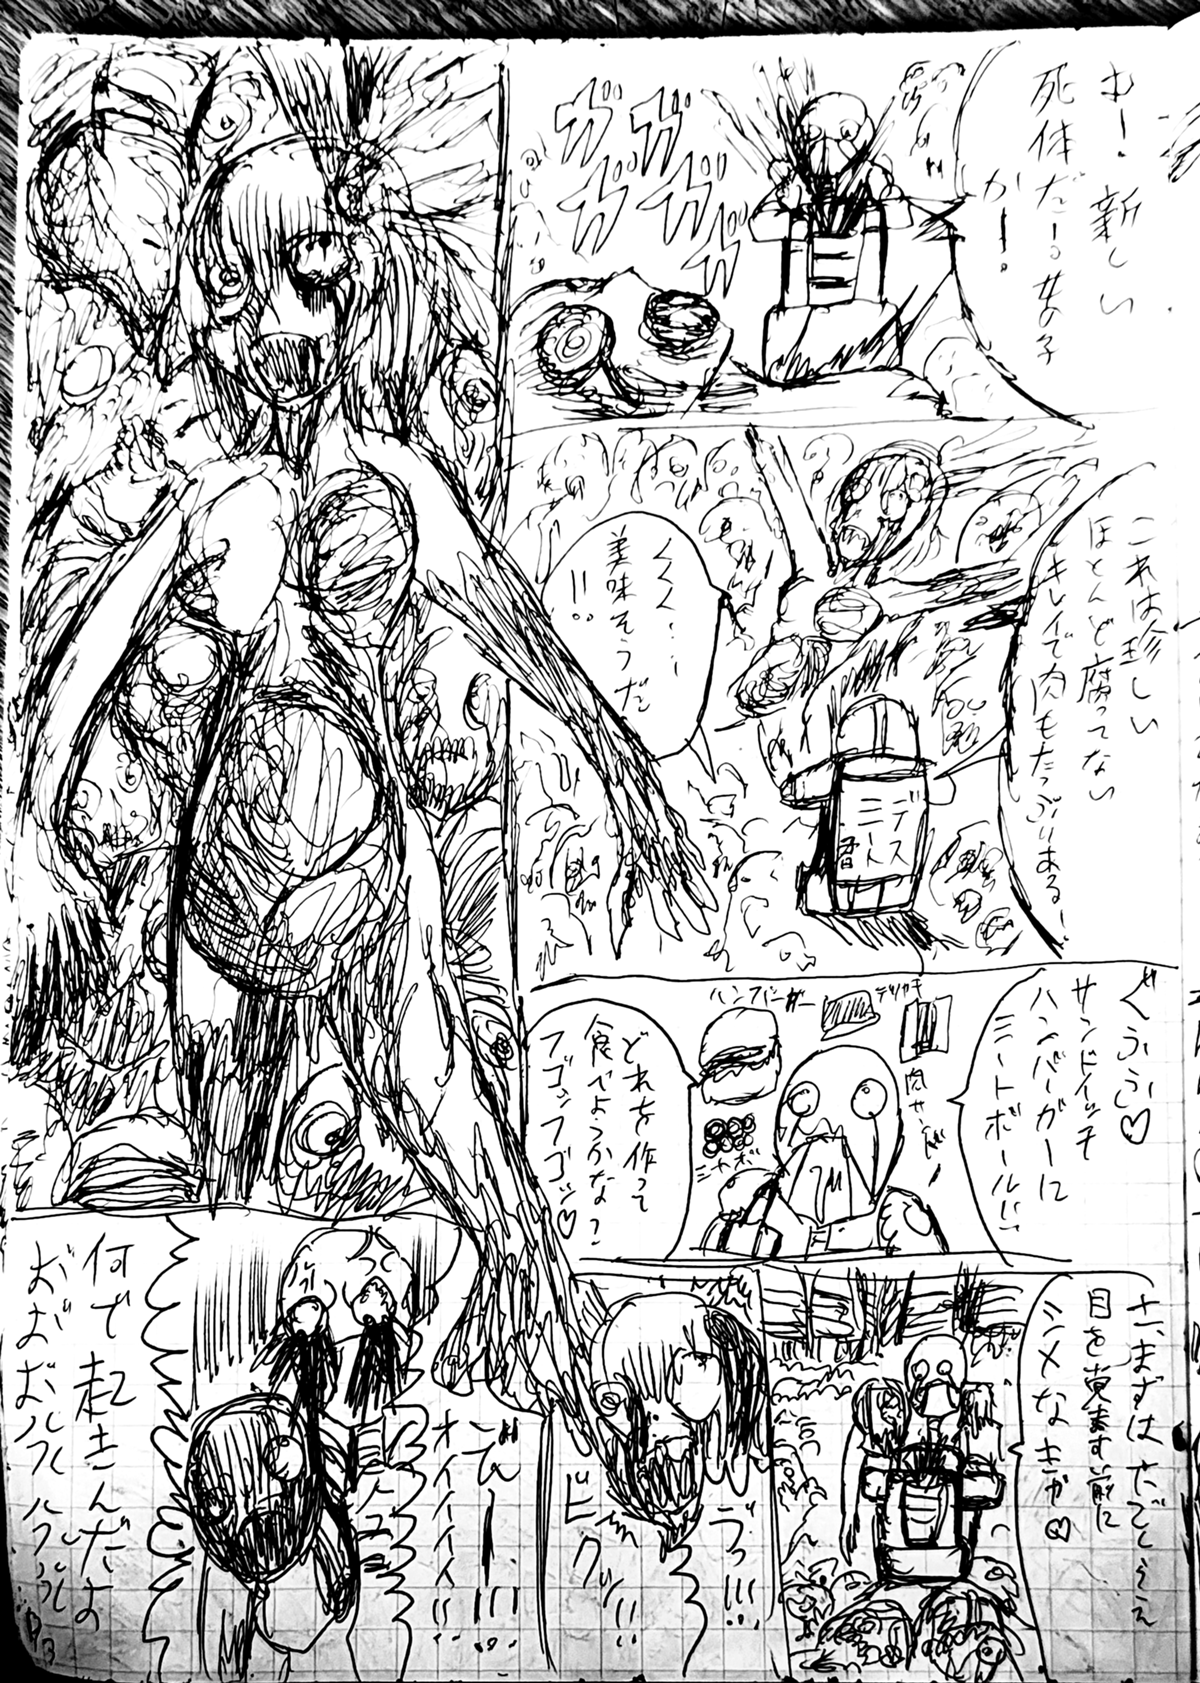 お！新しい
死体だー。女の子
かー！
ガガガガガガ
これは珍しい
ほとんど腐ってない
キレイで肉もたっぷりある！
くくく…
美味そうだ
!!
デス
ミート
ぐふふ♡
サンドイッチ
ハンバーガーに
ミートボール
ハンバーガー
テリヤキ
肉サンド
ミートボ
どれを作って
食べようかな？
フゴッフゴッ♡
まずは
目を
シメなきゃ♡
ビクッ!!
オイイイイ!!
何で起きんだよ